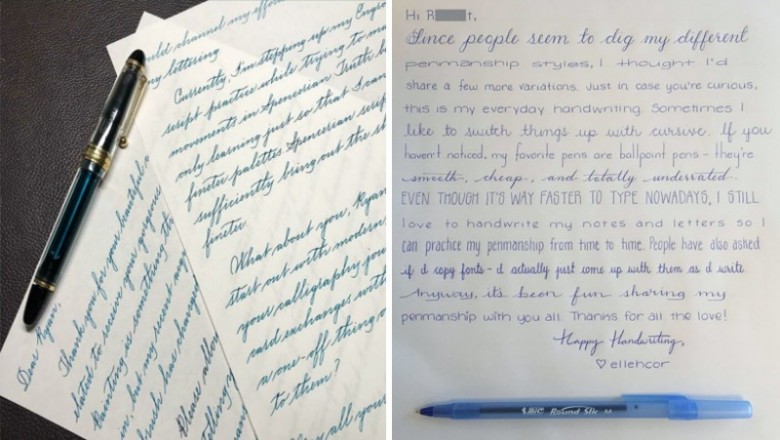 channel my
my lettering
Currently, I'm stepping up my
script practice while trying to
movements in Spencerian. Truth
only learning just so that I can
finetec palettes. Spencerian
sufficiently bring out the
finetec.
What about you, Ryan
start out with modern
your calligraphy you
card exchanges with
a one-off thing
to them?
all your
Dear Ryan,
Thank you for your beautiful
elated to receive your gorgeous
Painting is something
in, but my recent
brush has
Please allow
Hi R t,
Since people seem to dig my different
penmanship styles, I thought I'd
share a few more variations. Just in case you're curious,
this is my everyday handwriting. Sometimes I
like to switch things up with cursive. If you
haven't noticed, my favorite pens are ballpoint pens – they're
smooth, cheap, and totally underrated.
EVEN THOUGH IT'S WAY FASTER TO TYPE NOWADAYS, I STILL
love to handwrite my notes and letters so I
can practice my penmanship from time to time. People have also asked
if I copy fonts – I actually just come up with them as I write
Anyway, it's been fun sharing my
penmanship with you all. Thanks for all the love!
Happy Handwriting,
♡ ellencor
BIC Round Stic M